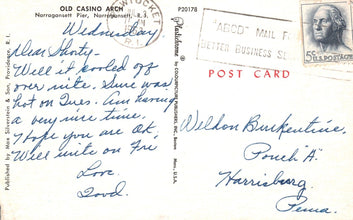 OLD CASINO ARCH
Narragansett Pier, Narragansett, R.I.
Wednesday
Dear Shorty-
Well it cooled off
over nite. Sure was
hot on Tues. Am having
a very nice time.
I hope you are OK.
Will write on Fri
Love
Published by Max Silverstein & Son, Providence, R. I.
P20178
Plastichrome
by COLOURPICTURE PUBLISHERS, INC., Boston
Mass., U.S.A.
PAWTUCKET
R.I.
"ABCD" MAIL F
BETTER BUSINESS S
5¢ U.S. POSTAGE
POST CARD
Weldon Burkentine,
Pouch "A"
Harrisburg
Penna.